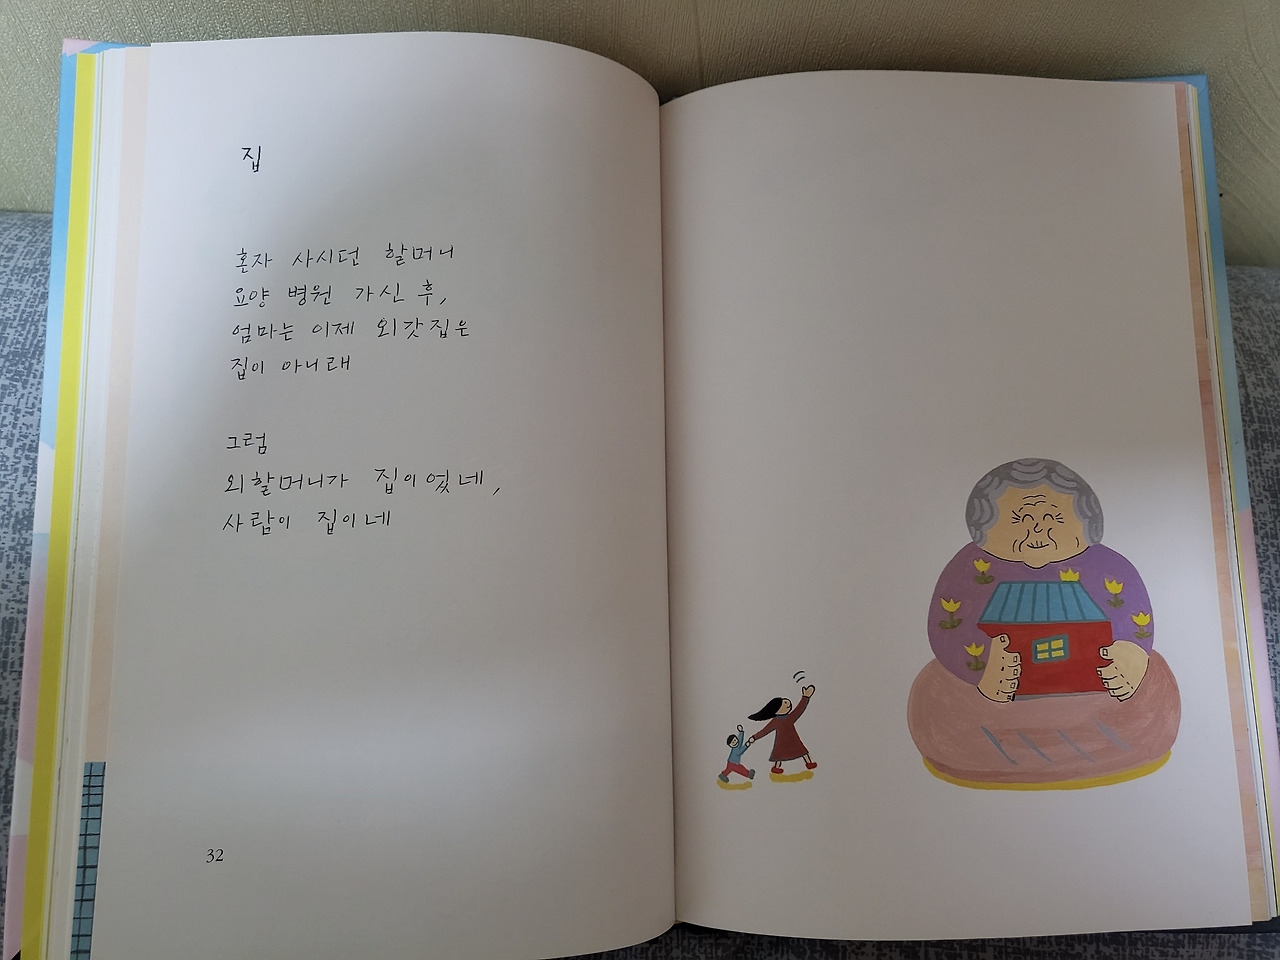 집
혼자 사시던 할머니
요양 병원 가신 후,
엄마는 이제 외갓집은
집이 아니래
그럼
외할머니가 집이었네,
사람이 집이네
32